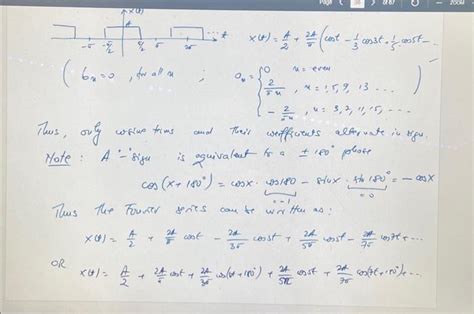 Page 38 of 87 ZOOM
x(t)
A
-π -π/2 π/2 π 2π t
x(t) = A/2 + 2A/π (cost - 1/3 cos3t + 1/5 cos5t - ...
( bn = 0, for all n ; an = { 0 n = even
2/πn , n = 1, 5, 9, 13 ...
- 2/πn , n = 3, 7, 11, 15, ... )
Thus, only cosine terms and their coefficients alternate in sign.
Note: A "-" sign is equivalent to a ± 180° phase
cos(x+180°) = cosx · cos180 - sinx · sin180° = - cosx
= -1 = 0
Thus the Fourier series can be written as:
x(t) = A/2 + 2A/π cost - 2A/3π cos3t + 2A/5π cos5t - 2A/7π cos7t + ...
OR
x(t) = A/2 + 2A/π cost + 2A/3π cos(3t+180°) + 2A/5π cos5t + 2A/7π cos(7t+180°) + ...